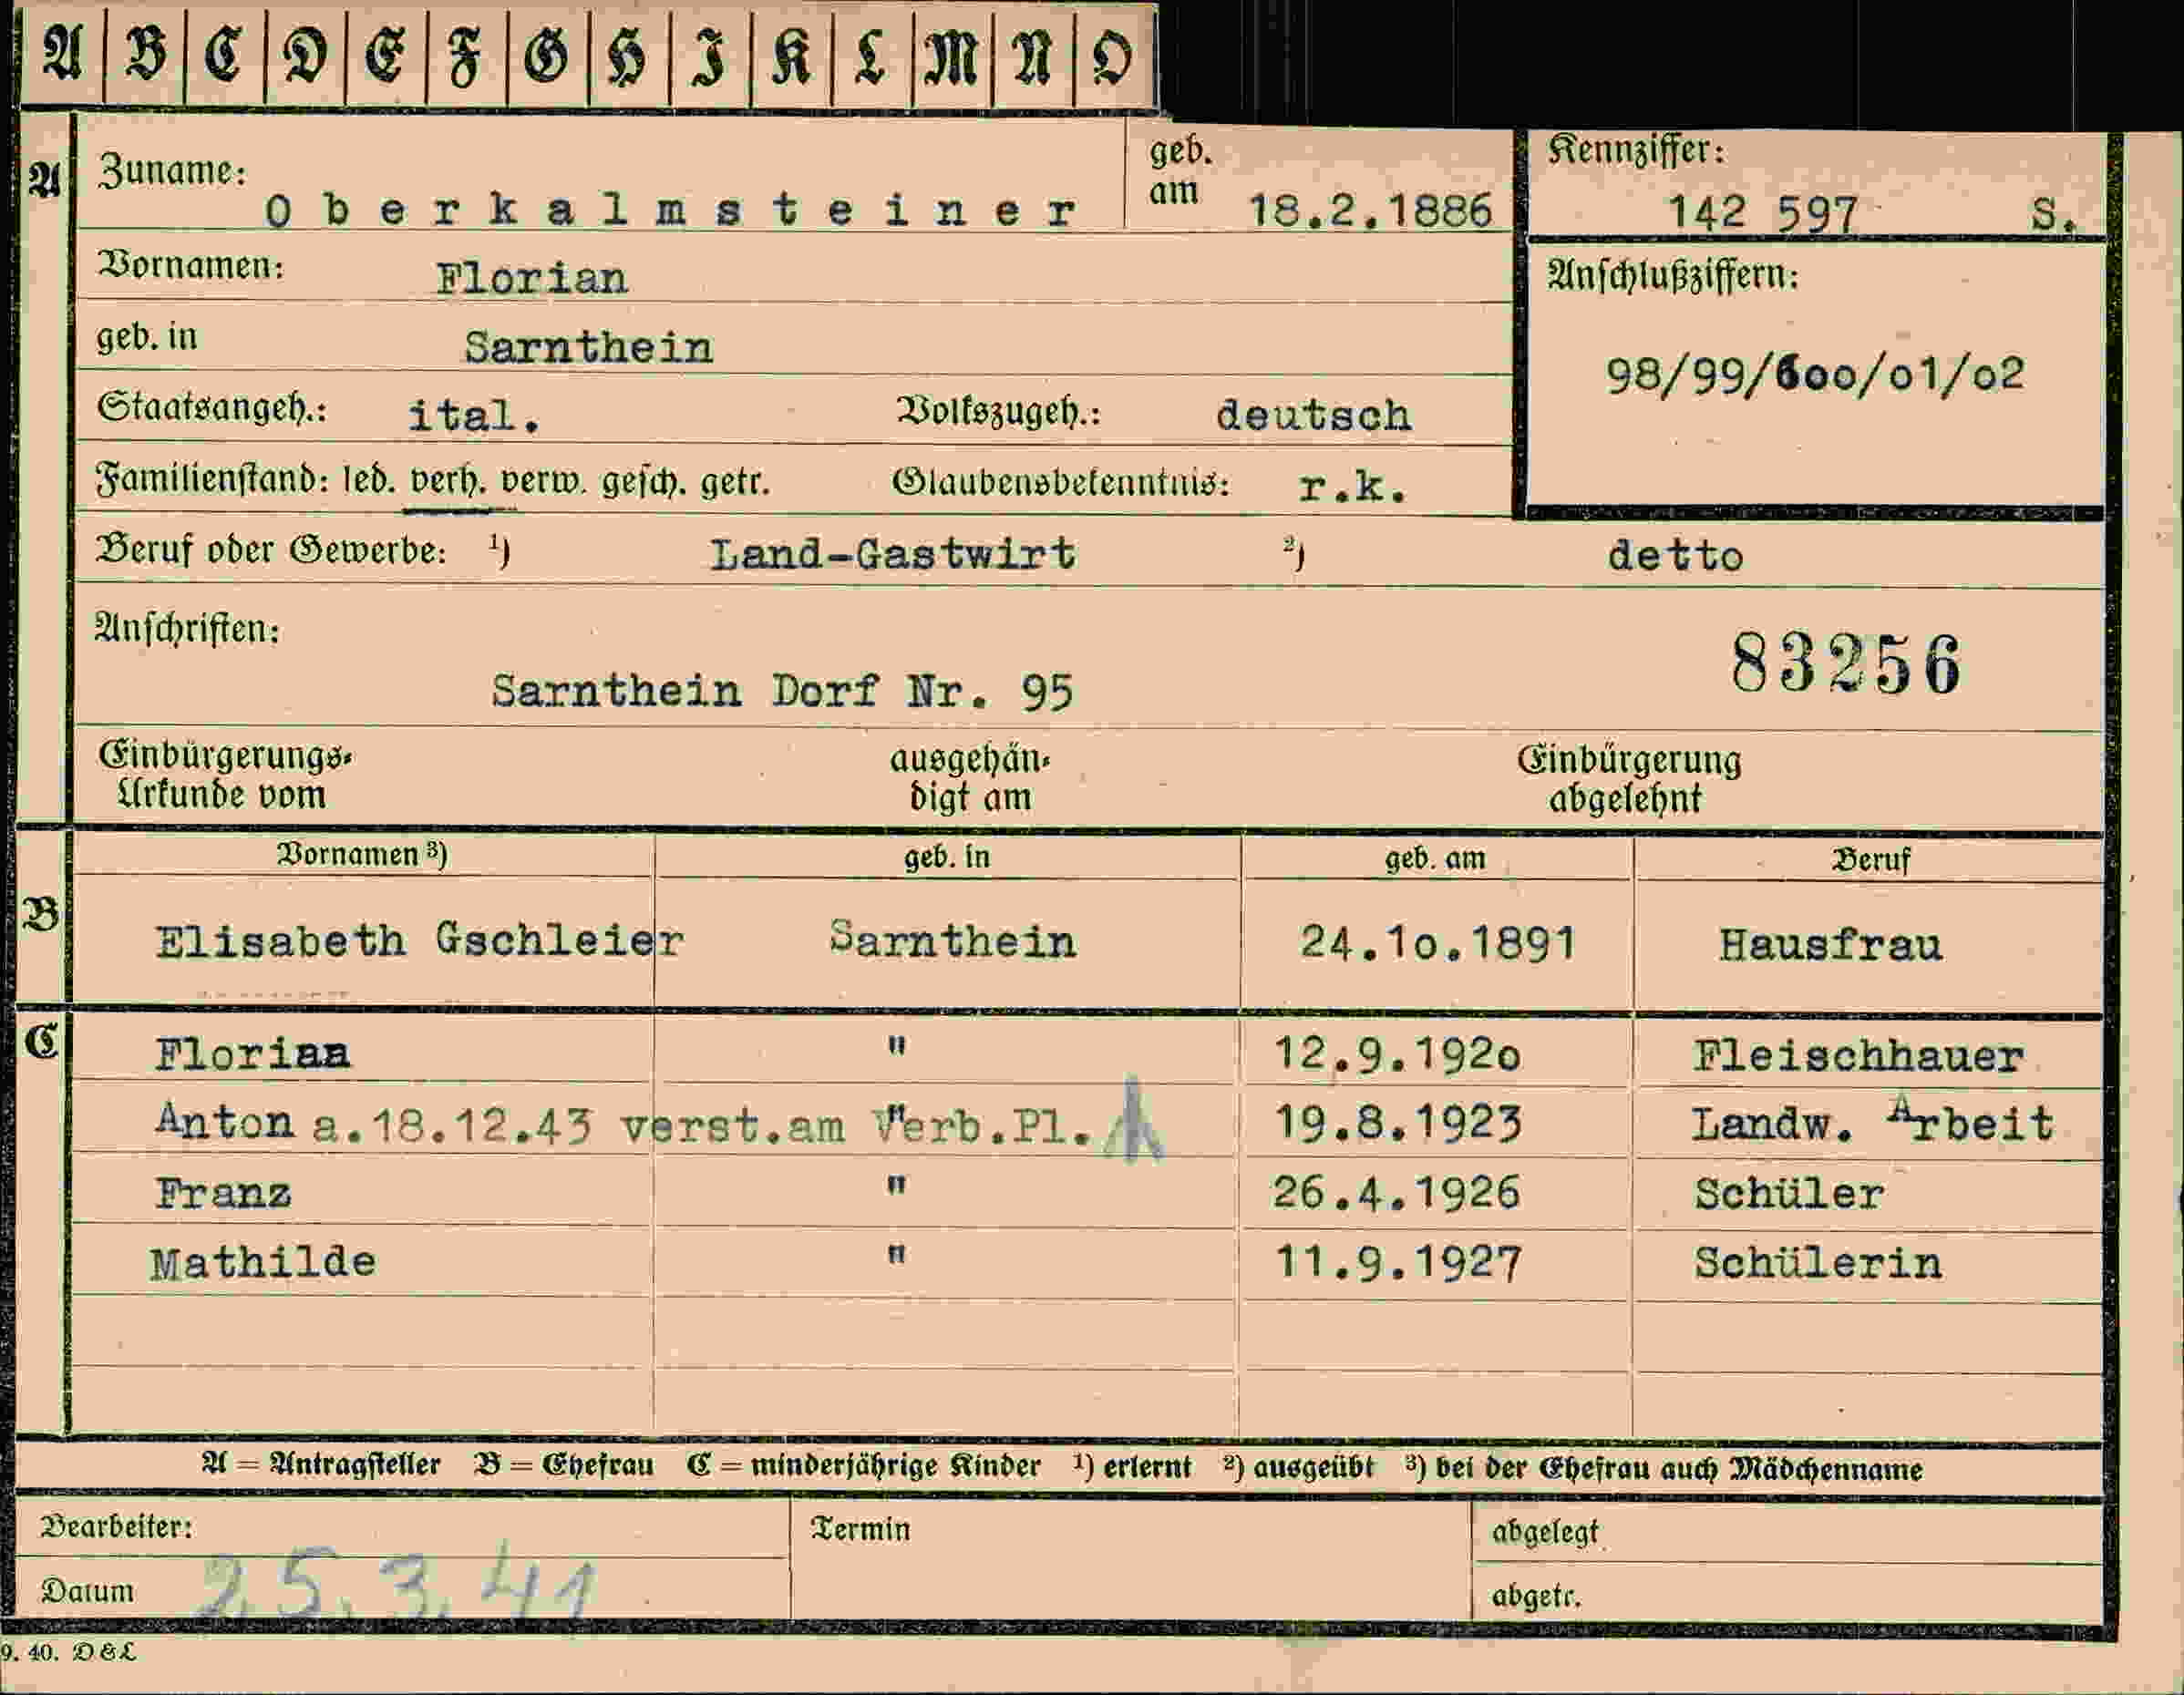 A B C D E F G H I K L M N O
A Zuname: Oberkalmsteiner geb. am 18.2.1886 Kennziffer: 142 597 S.
Vornamen: Florian Anschlußziffern:
geb. in Sarnthein 98/99/600/o1/o2
Staatsangeh.: ital. Volkszugeh.: deutsch
Familienstand: led. verh. verw. gesch. getr. Glaubensbekenntnis: r.k.
Beruf oder Gewerbe: ¹) Land-Gastwirt ²) detto
Anschriften: 83256
Sarnthein Dorf Nr. 95
Einbürgerungs- ausgehän- Einbürgerung
Urkunde vom digt am abgelehnt
Vornamen ³) geb. in geb. am Beruf
B Elisabeth Gschleier Sarnthein 24.1o.1891 Hausfrau
C Florian " 12.9.192o Fleischhauer
Anton a.18.12.43 verst.am Verb.Pl. " 19.8.1923 Landw. Arbeit
Franz " 26.4.1926 Schüler
Mathilde " 11.9.1927 Schülerin
A = Antragsteller B = Ehefrau C = minderjährige Kinder ¹) erlernt ²) ausgeübt ³) bei der Ehefrau auch Mädchenname
Bearbeiter: Termin abgelegt
Datum 25.3.41 abgetr.
9. 40. D&L